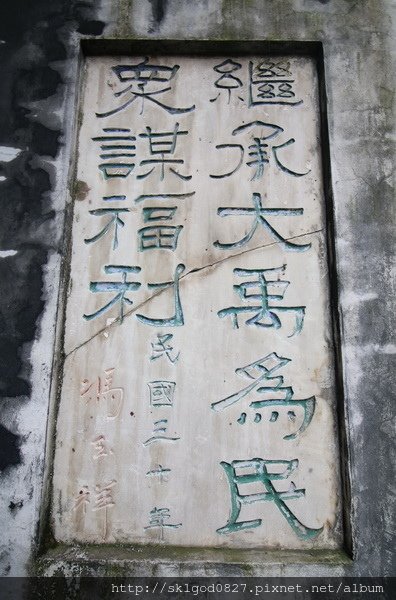 繼承大禹為民
眾謀福利
民國三十年
馮玉祥
http://sklgod0827.pixnet.net/album